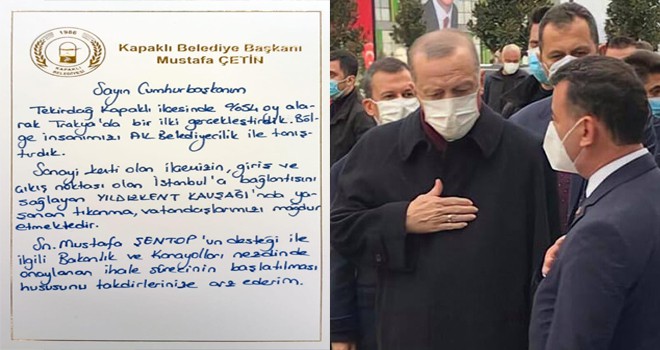 1986
KAPAKLI
BELEDİYESİ
Kapaklı Belediye Başkanı
Mustafa ÇETİN
Sayın Cumhurbaşkanım
Tekirdağ Kapaklı ilçesinde %54 oy ala-
rak Trakya'da bir ilki gerçekleştirdik. Böl-
ge insanımızı AK Belediyecilik ile tanış-
tırdık.
Sanayi kenti olan ilçemizin, giriş ve
çıkış noktası olan İstanbul'a bağlantısını
sağlayan YILDIZKENT KAVŞAĞI'nda ya-
şanan tıkanma, vatandaşlarımızı mağdur
etmektedir.
Sn. Mustafa ŞENTOP'un desteği ile
ilgili Bakanlık ve Karayolları nezdinde
onaylanan ihale sürecinin başlatılması
hususunu takdirlerinize arz ederim.